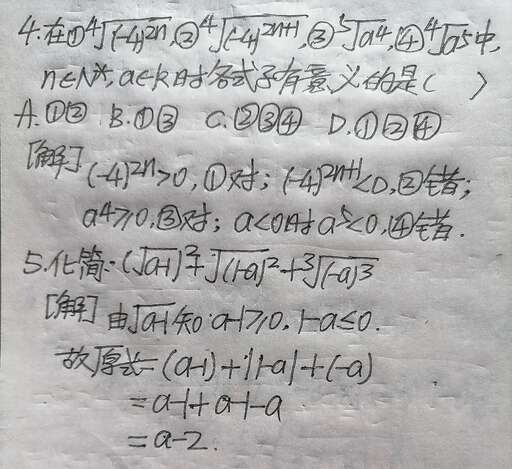 4.在①⁴√(-4)²ⁿ,②⁴√(-4)²ⁿ⁺¹,③⁵√a⁴,④⁴√a⁵中,
n∈N*,a∈R时各式子有意义的是( )
A.①② B.①③ C.②③④ D.①②④
[解] (-4)²ⁿ>0,①对;(-4)²ⁿ⁺¹<0,②错;
a⁴≥0,③对;a<0时a⁵<0,④错.
5.化简:(√a-1)²+√(1-a)²+³√(-a)³
[解] 由√a-1知a-1≥0,1-a≤0.
故原式=(a-1)+|1-a|+(-a)
=a-1+a-1-a
=a-2.